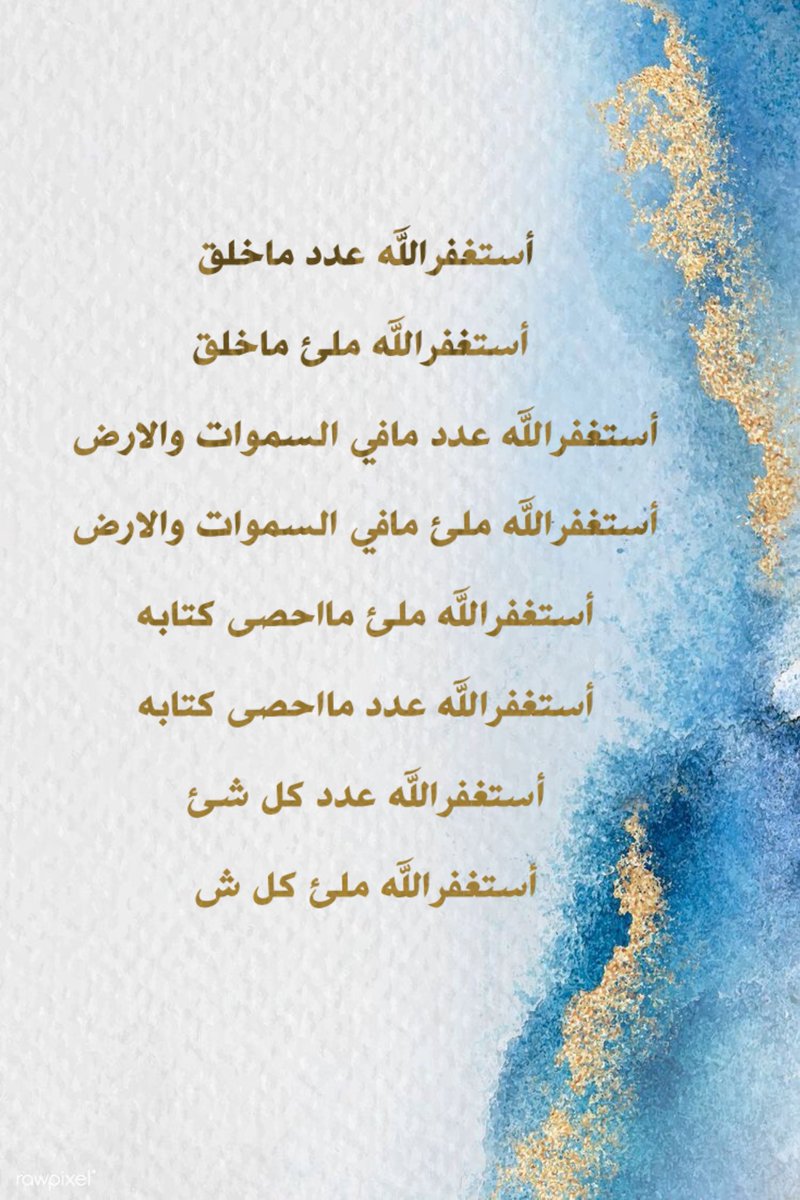 أستغفرالله عدد ماخلق
أستغفرالله ملئ ماخلق
أستغفرالله عدد مافي السموات والارض
أستغفرالله ملئ مافي السموات والارض
أستغفرالله ملئ مااحصى كتابه
أستغفرالله عدد مااحصى كتابه
أستغفرالله عدد كل شئ
أستغفرالله ملئ كل ش
rawpixel